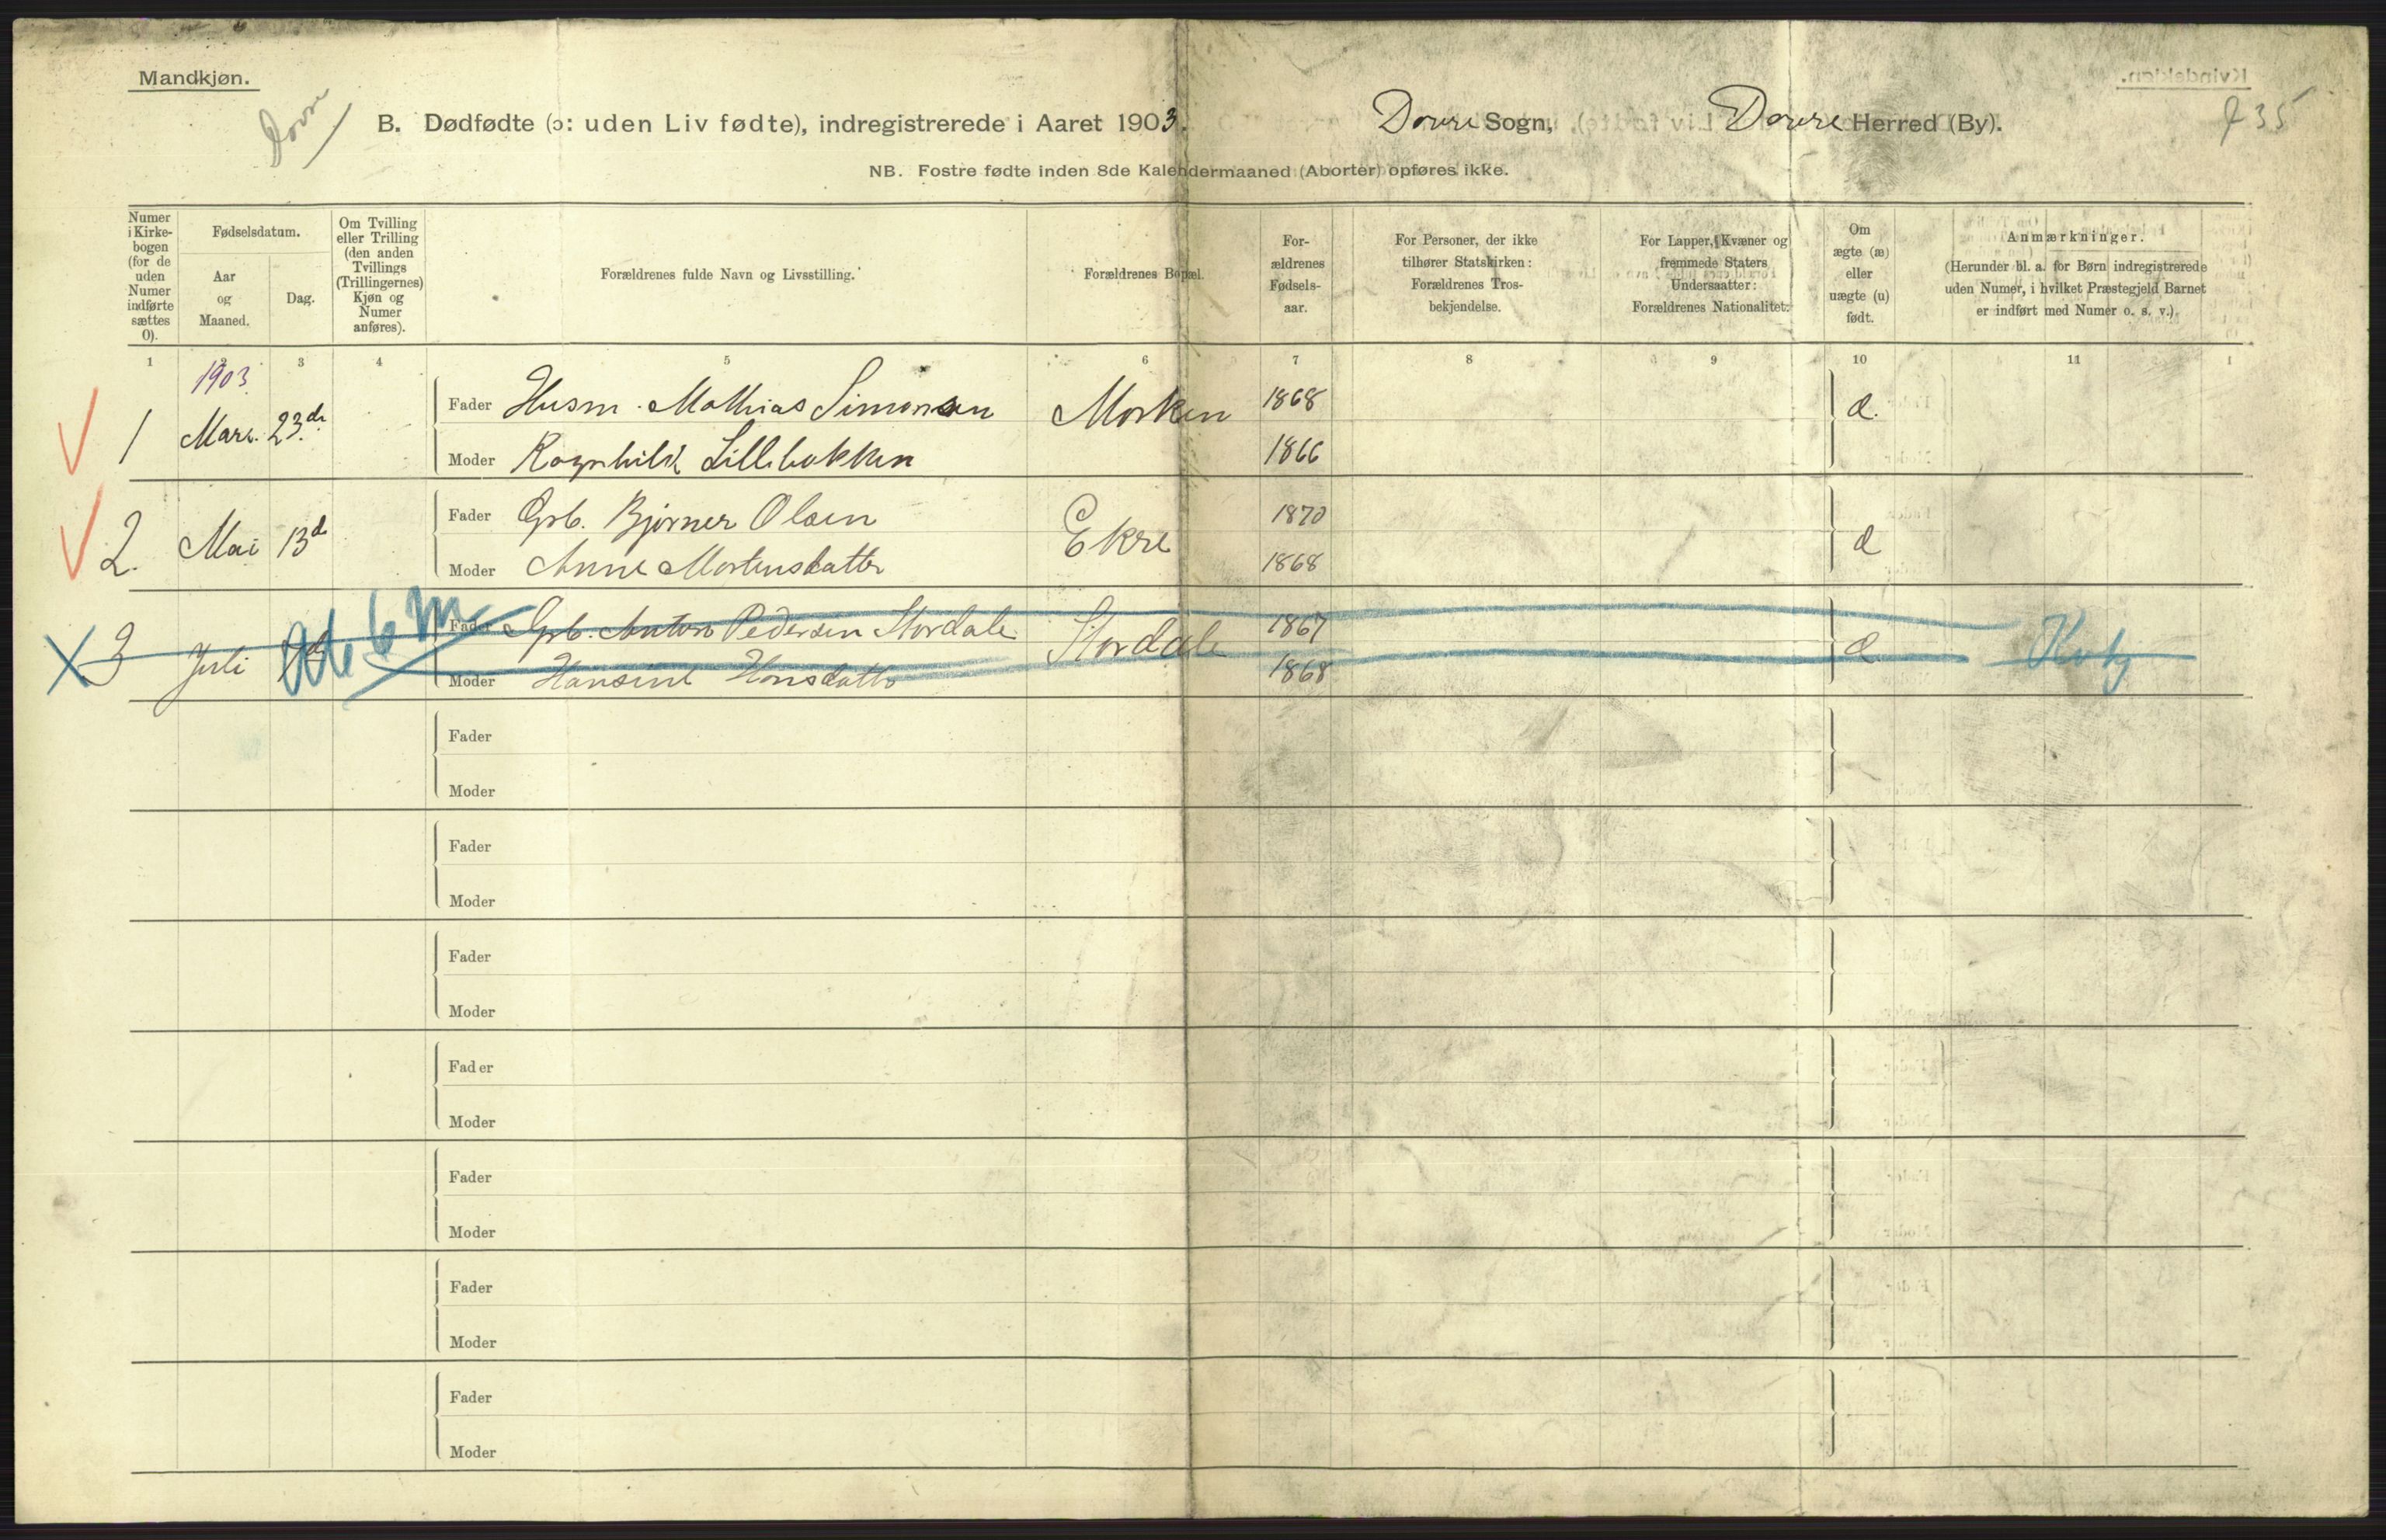 Mandkjøn.
Dovre
B. Dødfødte (ɔ: uden Liv fødte), indregistrerede i Aaret 1903. Dovre Sogn, Dovre Herred (By).
NB. Fostre fødte inden 8de Kalendermaaned (Aborter) opføres ikke.
Numer i Kirke-bogen (for de uden Numer indførte sættes 0).
Fødselsdatum.
Aar og Maaned.
Dag.
Om Tvilling eller Trilling (den anden Tvillings (Trillingernes) Kjøn og Numer anføres).
Forældrenes fulde Navn og Livsstilling.
Forældrenes Bopæl.
For-ældrenes Fødsels-aar.
For Personer, der ikke tilhører Statskirken: Forældrenes Tros-bekjendelse.
For Lapper, Kvæner og fremmede Staters Undersaatter: Forældrenes Nationalitet.
Om ægte (æ) eller uægte (u) født.
Anmærkninger.
(Herunder bl. a. for Børn indregistrerede uden Numer, i hvilket Præstegjeld Barnet er indført med Numer o. s. v.).
1 2 3 4 5 6 7 8 9 10 11
1903
1 Mars. 23de Fader Husm. Mathias Simonsen Morken 1868 æ.
Moder Ragnhild Lillebakken 1866
2. Mai 13de Fader Grb. Bjørner Olsen Ekre 1870 æ
Moder Anne Mortensdatter 1868
3 Juli Fader Grb. Anton Pedersen Stordale Stordale 1867 æ
6 M
Moder Hansine Hansdatter 1868
Fader
Moder
Fader
Moder
Fader
Moder
Fader
Moder
Fader
Moder
Fader
Moder
Fader
Moder